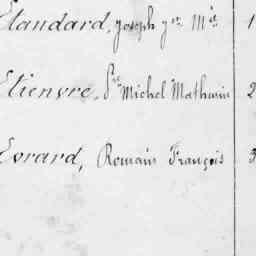 Etandard, Joseph Jn Mie 1
Etienvre, Pre Michel Mathurin 2
Evrard, Romain François 3